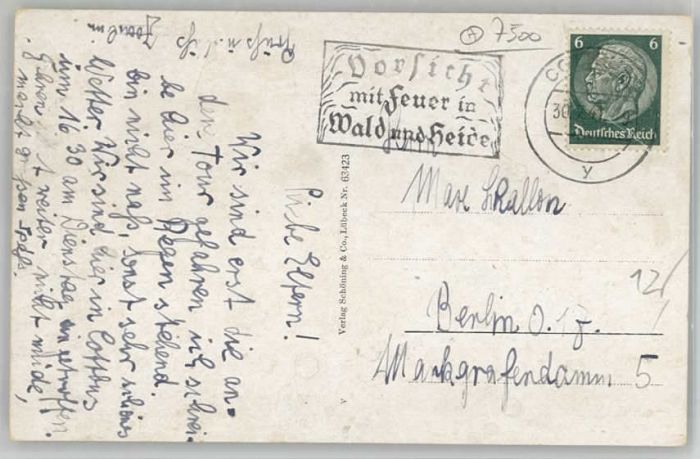 Liebe Eltern!
Wir sind erst die an-
den Tour gefahren ich schrei-
be hier im Regen stehend.
bin nicht naß, sonst sehr schönes
Wetter. Wir sind hier in Cottbus
um 16 30 am Dienstag eingetroffen.
Fahren weiter nicht müde,
macht großen Spaß.
Gruß
Verlag Schöning & Co., Lübeck Nr. 63423
7500
Vorsicht
mit Feuer in
Wald und Heide
6 6
Deutsches Reich
CO
30
y
Herrn
Max
Berlin O. 17.
Markgrafendamm 5
12/